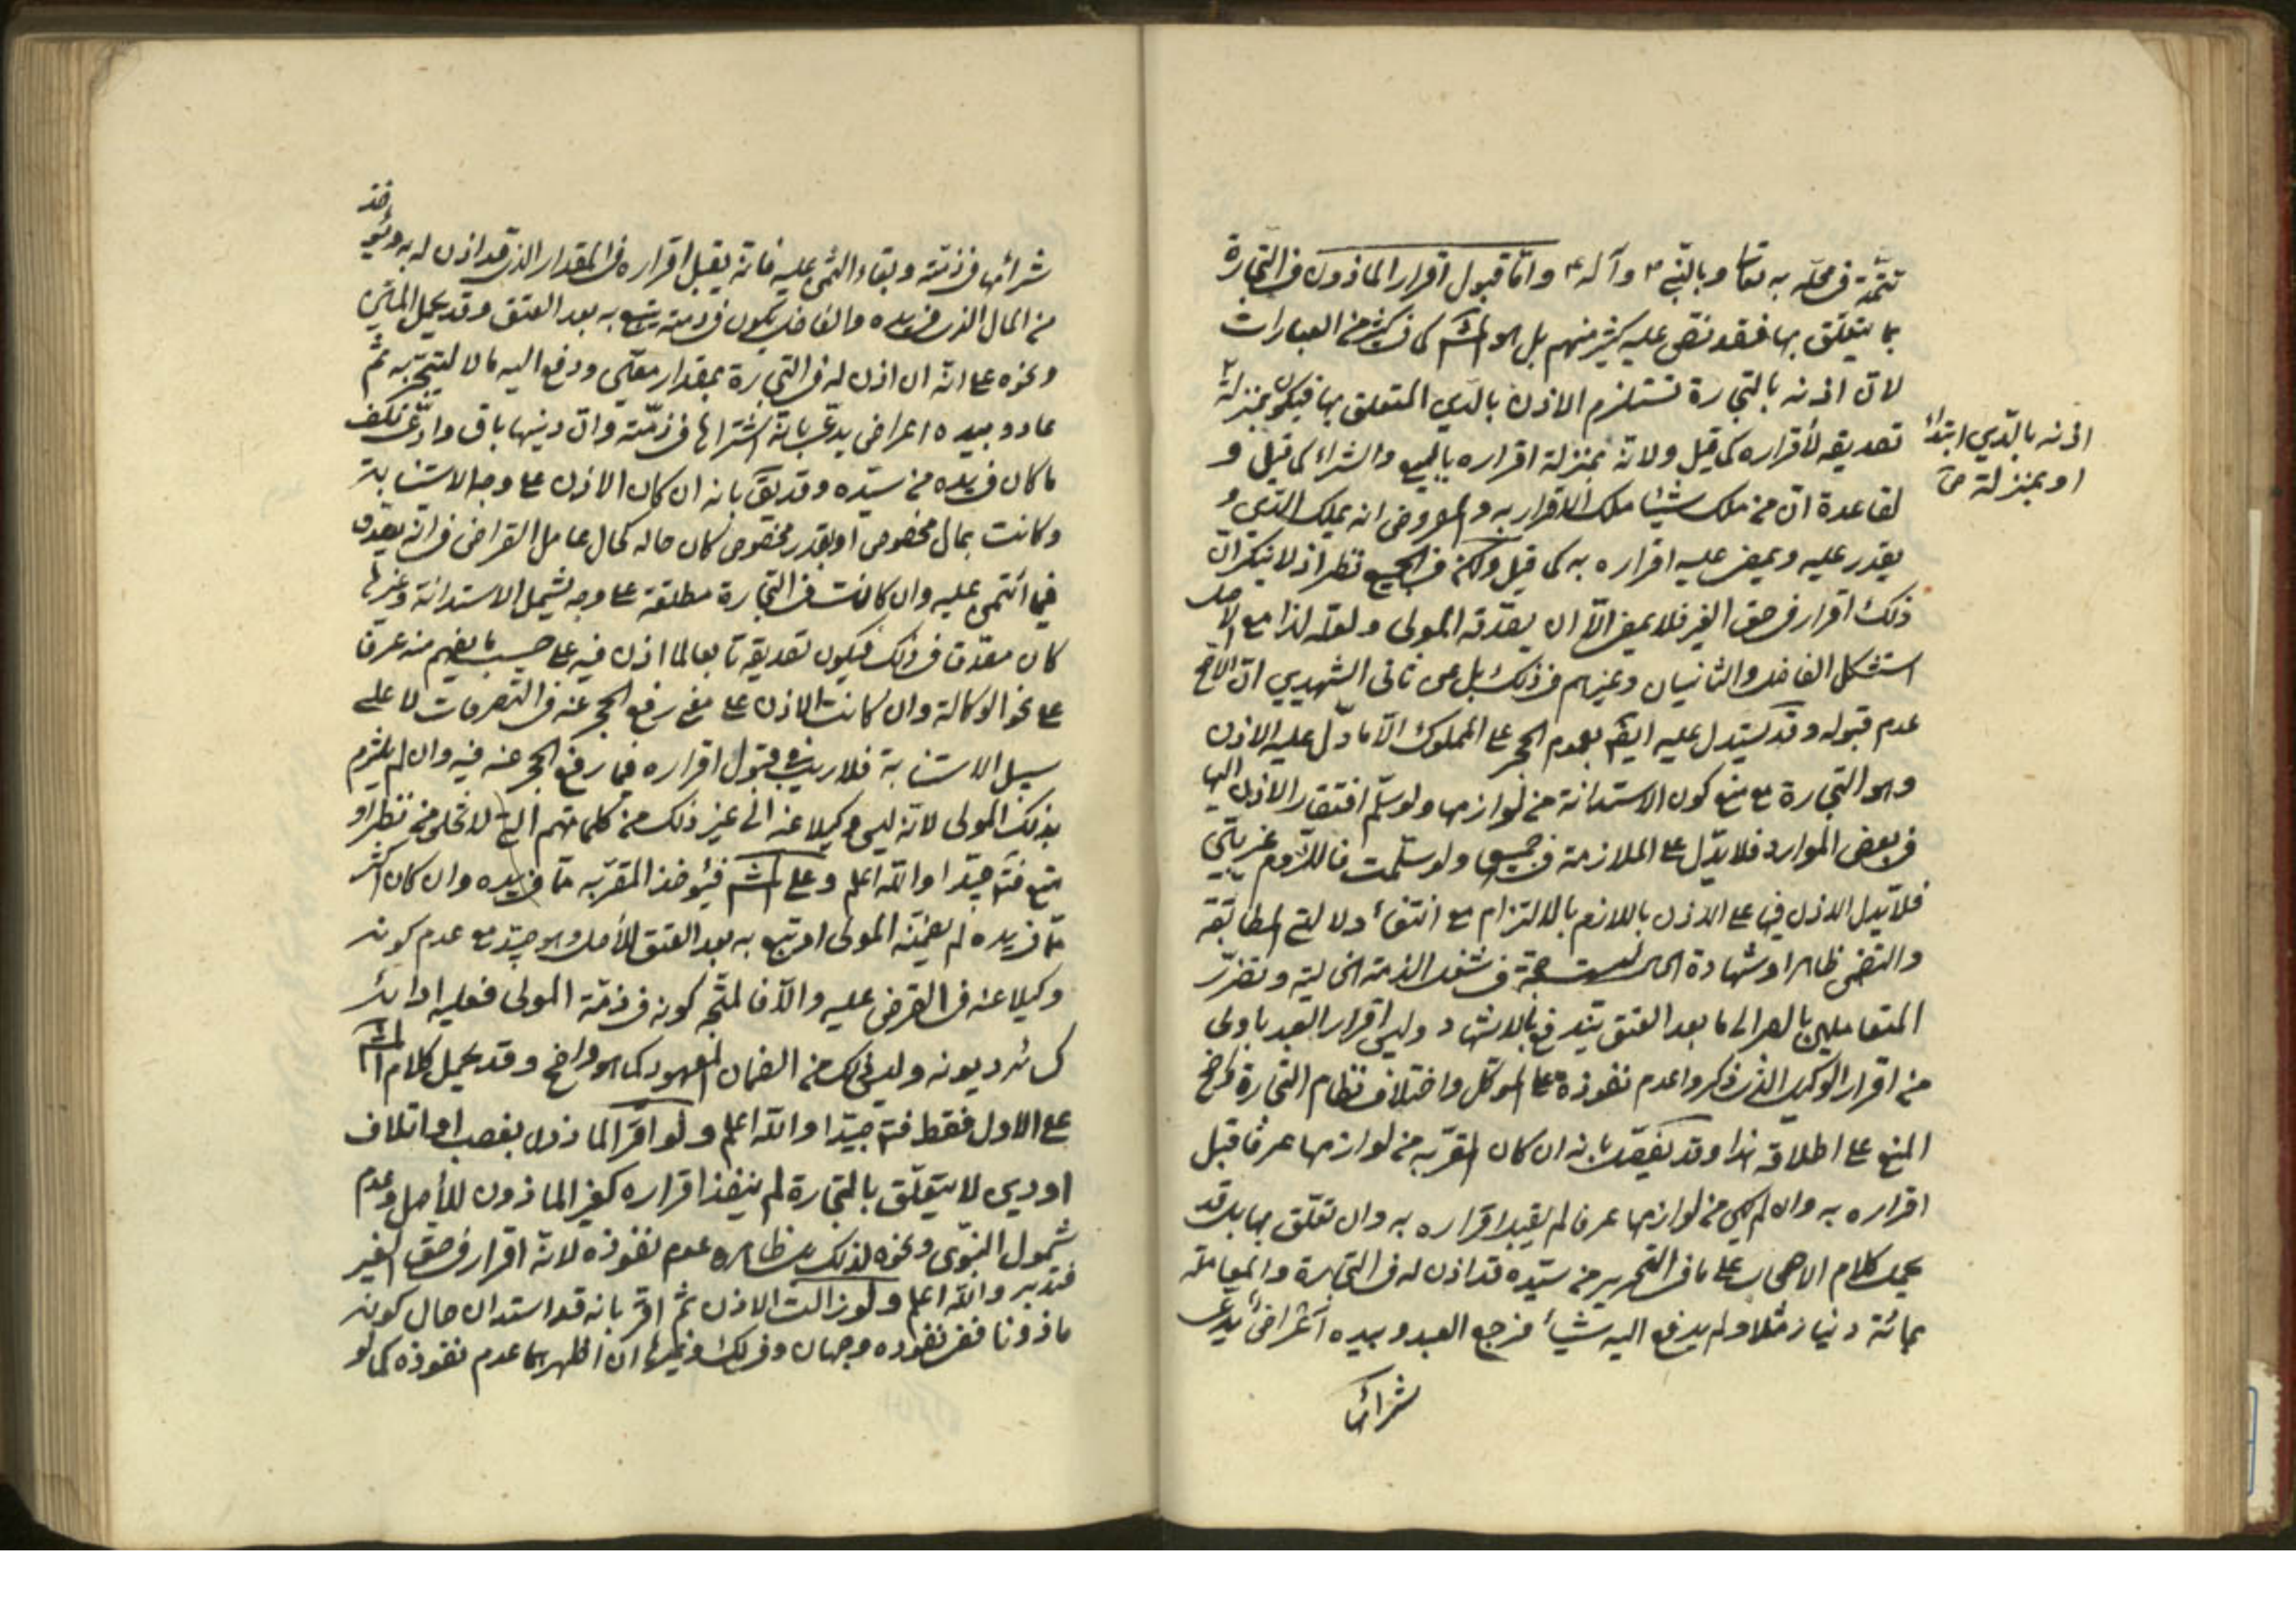 تتمّة في محلّه به تعالى وبالنّبي ص وآله ع وامّا قبول اقرار المأذون في التّجارة
بما يتعلّق بها فقد نصّ عليه كثير منهم بل هو المشهور كما في كثير من العبارات
لانّ اذنه بالتّجارة تستلزم الاذن بالدّين المتعلق بها فيكون بمنزلة
اذنه بالدّين ابتداءً
او بمنزلة
تصديقه لأقراره كما قيل ولانّه بمنزلة اقراره بالبيع والشراء كما قيل و
لقاعدة انّ من ملك شيئا ملك الاقرار به والمفروض انه يملك الدّين و
يقدر عليه ويمضى عليه اقراره به كما قيل ولكن في الجميع نظر اذ لا ينكر انّ
ذلك اقرار في حق الغير فلا يمضى الّا ان يصدّقه المولى ولعلّه لذا مع الاصل
استشكل الفاضل والثانيان وغيرهم في ذلك بل عن ثاني الشهيدين انّ الاصح
عدم قبوله وقد يستدل عليه ايضا بعموم الحجر على المملوك الّا ما دلّ عليه الاذن
وهو التجارة مع منع كون الاستدانة من لوازمها ولو سلّم افتقار الاذن اليها
في بعض الموارد فلا يدّل على الملازمة في جميعها ولو سلّمت فاللّزوم غير بيّن
فلا يدل الاذن فيها على الاذن باللازم بالالتزام مع انتفاء دلالتي المطابقة
والتضمن ظاهرا وشهادة الحال ليست حجة في شغل الذمة الخالية وتضرّر
المتعاملين بالصبر الى ما بعد العتق يندفع بالاشهاد وليس اقرار العبد باولى
من اقرار الوكيل الذي ذكروا عدم نفوذه على الموكّل واختلاف نظام التجارة
المنع على اطلاقه هذا وقد يفصّل بانه ان كان المقرّ به من لوازمها عرفا قبل
اقراره به وان لم يكن من لوازمها عرفا لم يقبل اقراره به وان تعلّق بها بل قد
يحمل كلام الاصحاب على ما في التحرير من سيّده قد اذن له في التجارة والمعاملة
بمائة دينار مثلا ولم يدفع اليه شيئا فرجع العبد وبيده اعراض يدّعى
شرائها
شرائها في ذمّته وبقاء الثمن عليه فانّه يقبل اقراره في المقدار الذي قد اذن له به ويؤخذ
من المال الذي في يده والفاضل يكون في ذمته يتبع به بعد العتق وقد يحمل المتن
ونحوه على انّه ان اذن له في التجارة بمقدار معيّن ودفع اليه مالا ليتّجر به ثمّ
عاد وبيده اعراض يدّعى بانّه اشتراها في ذمّته وانّ دينها باق وادّعى تلف
ما كان في يده من سيّده وقد يقال بانه ان كان الاذن على وجه الاستنابة
وكانت بمال مخصوص او بقدر مخصوص كان حاله كحال عامل القراض في انّه يصدق
فيما أئتمن عليه وان كانت في التجارة مطلقة على وجه يشمل الاستدانة وغيرها
كان مصدّقا في ذلك فيكون تصديقه تابعا لما اذن فيه على حسب ما يفهم منه عرفا
على نحو الوكالة وان كانت الاذن على معنى رفع الحجر عنه في التصرفات لا على
سبيل الاستنابة فلا ريب في قبول اقراره فيما رفع الحجر عنه فيه وان لم يلتزم
بذلك المولى لانّه ليس وكيلا عنه الى غير ذلك من كلماتهم التي لا تخلو من نظر او
منع فتأمل جيّدا واللّه اعلم وعلى المشهور فيؤخذ المقرّ به ممّا في يده وان كان اكثر
ممّا في يده لم يضمنه المولى او يتبع به بعد العتق للأصل وهو جيّد مع عدم كونه
وكيلا عنه في القرض عليه والّا فالمتّجه كونه في ذمّة المولى فعليه ادائه
كسائر ديونه وليس ذلك من الضمان المعهود كما هو واضح وقد يحمل كلام المشهور
على الاول فقط فتأمل جيّدا واللّه اعلم ولو اقرّ المأذون بغصب او اتلاف
او دين لا يتعلّق بالتجارة لم ينفذ اقراره كغير المأذون للأصل وعدم
شمول النّبوى ونحوه لذلك بل ظاهره عدم نفوذه لانّه اقرار في حق الغير
فتدبر واللّه اعلم ولو زالت الاذن ثمّ اقر بانه قد استدان حال كونه
مأذونا ففي نفوذه وجهان وفي ذلك ان اظهرهما عدم نفوذه كما لو